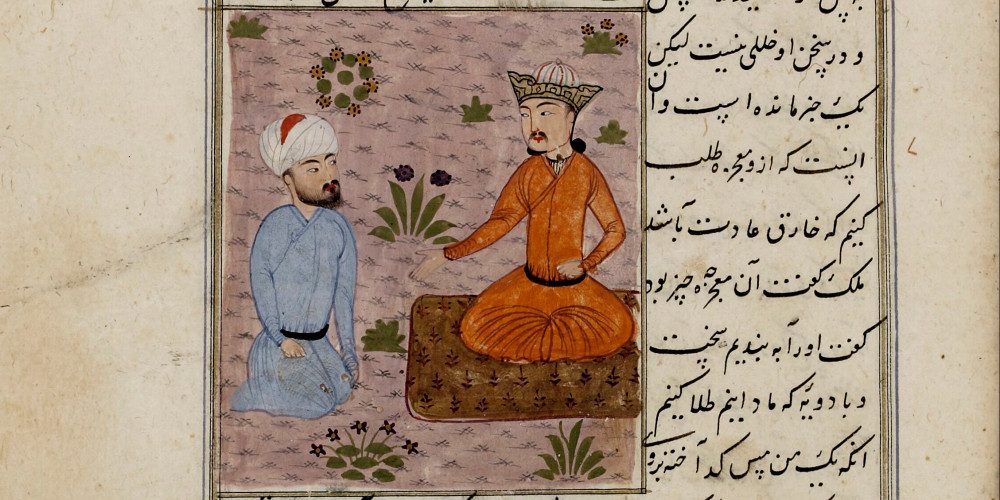 و در سخن او خللی نیست لیکن
یک چیز مانده است و آن
اینست که ازو معجزه طلب
کنیم که خارق عادت باشد
ملک گفت آن معجزه چیز بود
گفت او را به بندیم سخت
و با دویه که ما دانیم طلا کنیم
انکه یک من مس کداخته بروی